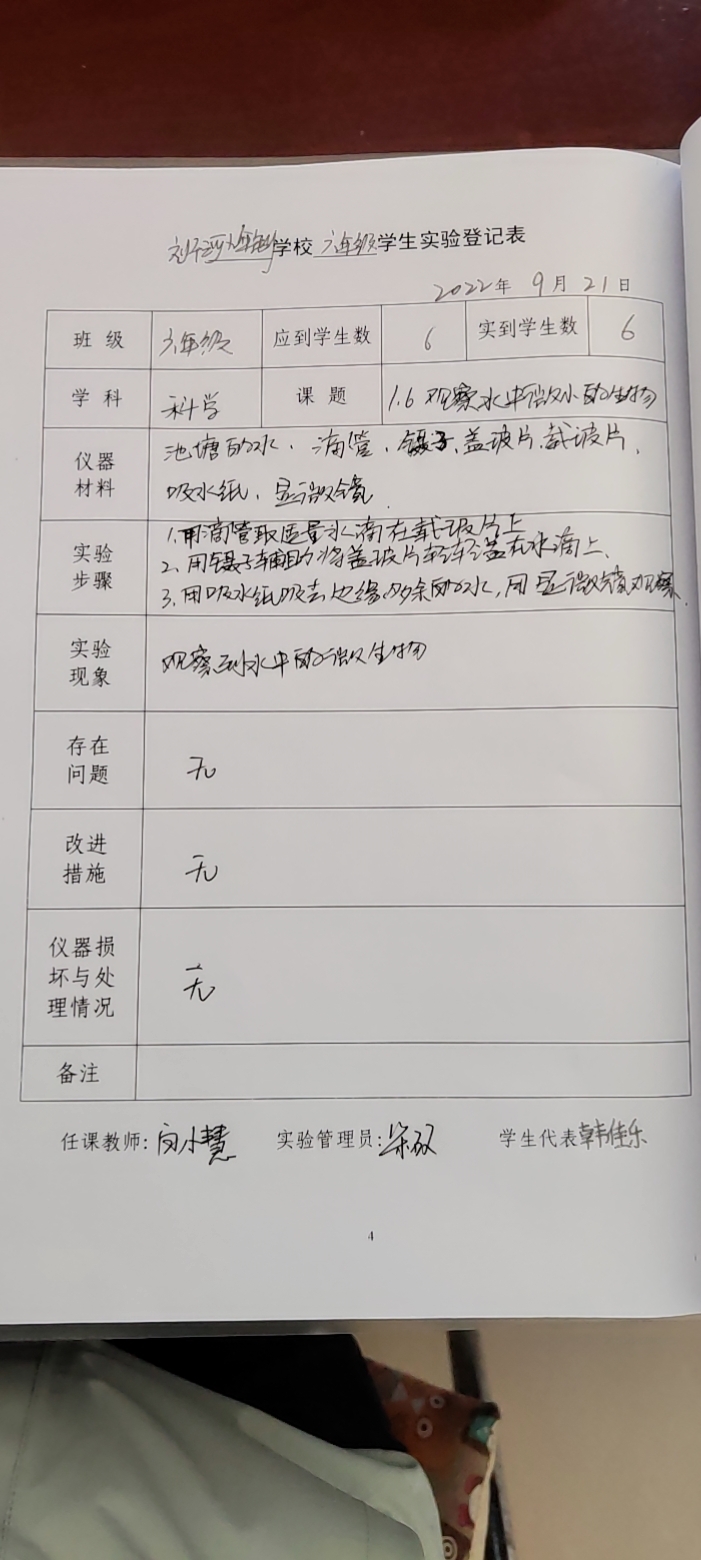 学校 六年级 学生实验登记表
2022年 9月 21日
班级 六年级 应到学生数 6 实到学生数 6
学科 科学 课题 1.6 观察水中微小的生物
仪器材料 池塘的水、滴管、镊子、盖玻片、载玻片、
吸水纸、显微镜
实验步骤 1.用滴管取适量水滴在载玻片上
2.用镊子辅助将盖玻片轻轻盖在水滴上、
3.用吸水纸吸去边缘多余的水,用显微镜观察.
实验现象 观察到水中的微生物
存在问题 无
改进措施 无
仪器损坏与处理情况 无
备注
任课教师: 小慧 实验管理员: 学生代表 韩佳乐
4